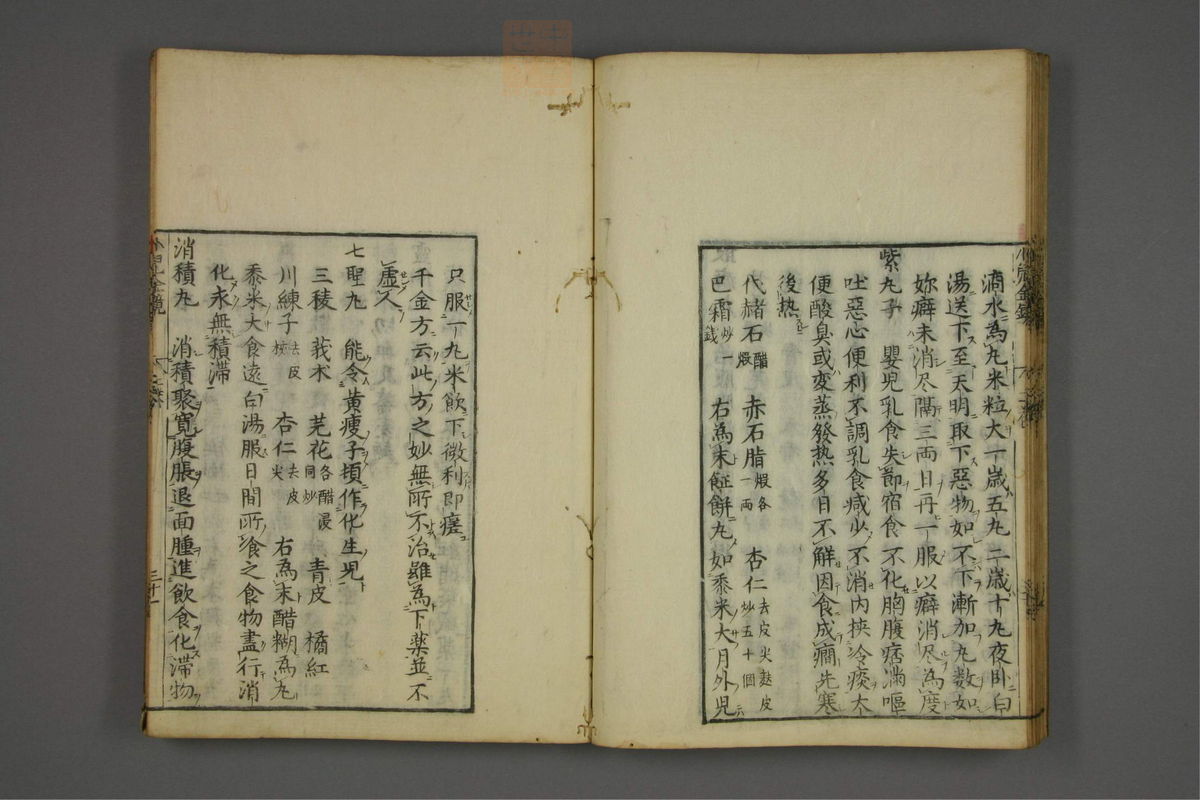 滴水為丸米粒大一歳五丸二歳十丸夜卧白
湯送下至天明取下惡物如不下漸加丸数如
妳癖未消尽隔三両日再一服以癖消尽為度
紫丸子 嬰児乳食失節宿食不化胸腹痞満嘔
吐惡心便利不調乳食减少不消内挾冷痰大
便酸臭或変蒸發热多日不解因食成癇先寒
後热
代赭石醋煅 赤石脂煅各一両 杏仁去皮尖麩皮炒五十個
巴霜炒一銭 右為末蒸餅丸如黍米大月外児
只服一丸米飲下微利即瘥
千金方云此方之妙無所不治雖為下薬並不
虚人
七聖丸 能令黄痩子頃作化生児
三稜 莪术 芫花各醋浸同炒 青皮 橘紅
川練子去皮核 杏仁去皮尖 右為末醋糊為丸
黍米大食遠白湯服日間所食之食物盡行消
化永無積滞
消積丸 消積聚寛腹脹退面腫進飲食化滞物
三十一